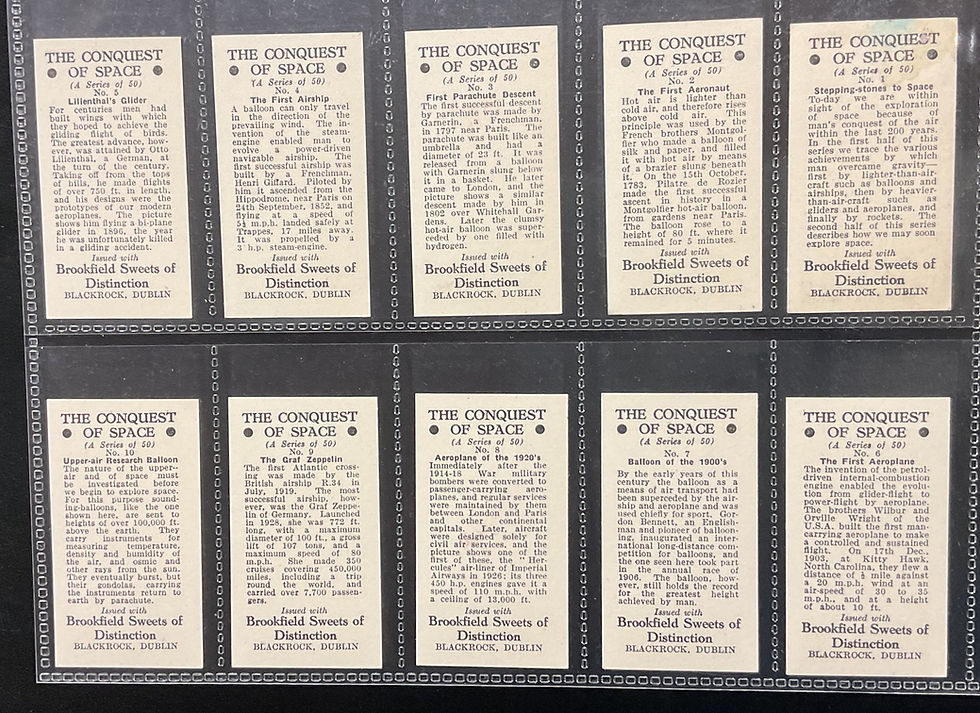 THE CONQUEST
OF SPACE
(A Series of 50)
No. 5
Lilienthal's Glider
For centuries men had
built wings with which
they hoped to achieve the
gliding flight of birds.
The greatest advance, how-
ever, was attained by Otto
Lilienthal, a German, at
the turn of the century.
Taking off from the tops
of hills, he made flights
of over 750 ft. in length,
and his designs were the
prototypes of our modern
aeroplanes. The picture
shows him flying a bi-plane
glider in 1896, the year
he was unfortunately killed
in a gliding accident.
Issued with
Brookfield Sweets of
Distinction
BLACKROCK, DUBLIN
THE CONQUEST
OF SPACE
(A Series of 50)
No. 4
The First Airship
A balloon can only travel
in the direction of the
prevailing wind. The in-
vention of the steam-
engine enabled man to
evolve a power-driven
navigable airship. The
first successful airship was
built by a Frenchman,
Henri Giffard. Piloted by
him it ascended from the
Hippodrome, near Paris on
24th September, 1852, and
flying at a speed of
5½ m.p.h. landed safely at
Trappes, 17 miles away.
It was propelled by a
3 h.p. steam-engine.
Issued with
Brookfield Sweets of
Distinction
BLACKROCK, DUBLIN
THE CONQUEST
OF SPACE
(A Series of 50)
No. 3
First Parachute Descent
The first successful descent
by parachute was made by
Garnerin, a Frenchman,
in 1797 near Paris. The
parachute was built like an
umbrella and had a
diameter of 23 ft. It was
released from a balloon
with Garnerin slung below
it in a basket. He later
came to London, and the
picture shows a similar
descent made by him in
1802 over Whitehall Gar-
dens. Later the clumsy
hot-air balloon was super-
ceded by one filled with
hydrogen.
Issued with
Brookfield Sweets of
Distinction
BLACKROCK, DUBLIN
THE CONQUEST
OF SPACE
(A Series of 50)
No. 2
The First Aeronaut
Hot air is lighter than
cold air, and therefore rises
above cold air. This
principle was used by the
French brothers Montgol-
fier who made a balloon of
silk and paper, and filled
it with hot air by means
of a brazier slung beneath
it. On the 15th October,
1783, Pilatre de Rozier
made the first successful
ascent in history in a
Montgolfier hot-air balloon,
from gardens near Paris.
The balloon rose to a
height of 80 ft. where it
remained for 5 minutes.
Issued with
Brookfield Sweets of
Distinction
BLACKROCK, DUBLIN
THE CONQUEST
OF SPACE
(A Series of 50)
No. 1
Stepping-stones to Space
To-day we are within
sight of the exploration
of space because of
man's conquest of the air
within the last 200 years.
In the first half of this
series we trace the various
achievements by which
man overcame gravity—
first by lighter-than-air-
craft such as balloons and
airships, then by heavier-
than-air-craft such as
gliders and aeroplanes, and
finally by rockets. The
second half of this series
describes how we may soon
explore space.
Issued with
Brookfield Sweets of
Distinction
BLACKROCK, DUBLIN
THE CONQUEST
OF SPACE
(A Series of 50)
No. 10
Upper-air Research Balloon
The nature of the upper-
air and of space must
be investigated before
we begin to explore space.
For this purpose sound-
ing-balloons, like the one
shown here, are sent to
heights of over 100,000 ft.
above the earth. They
carry instruments for
measuring temperature,
density and humidity of
the air, and osmic and
other rays from the sun.
They eventually burst, but
their gondolas, carrying
the instruments return to
earth by parachute.
Issued with
Brookfield Sweets of
Distinction
BLACKROCK, DUBLIN
THE CONQUEST
OF SPACE
(A Series of 50)
No. 9
The Graf Zeppelin
The first Atlantic cross-
ing was made by the
British airship R.34 in
July, 1919. The most
successful airship, how-
ever, was the Graf Zeppe-
lin of Germany. Launched
in 1928, she was 772 ft.
long, with a maximum
diameter of 100 ft., a gross
lift of 107 tons, and a
maximum speed of 80
m.p.h. She made 350
cruises covering 450,000
miles, including a trip
round the world, and
carried over 7,700 passen-
gers.
Issued with
Brookfield Sweets of
Distinction
BLACKROCK, DUBLIN
THE CONQUEST
OF SPACE
(A Series of 50)
No. 8
Aeroplane of the 1920's
Immediately after the
1914-18 War military
bombers were converted to
passenger-carrying aero-
planes, and regular services
were maintained by them
between London and Paris
and other continental
capitals. Later, aircraft
were designed solely for
civil air-services, and the
picture shows one of the
first of these, the "Her-
cules" air-liner of Imperial
Airways in 1926; its three
450 h.p. engines gave it a
speed of 110 m.p.h. with
a ceiling of 13,000 ft.
Issued with
Brookfield Sweets of
Distinction
BLACKROCK, DUBLIN
THE CONQUEST
OF SPACE
(A Series of 50)
No. 7
Balloon of the 1900's
By the early years of this
century the balloon as a
means of air transport had
been superceded by the air-
ship and aeroplane and was
used chiefly for sport. Gor-
don Bennett, an English-
man and pioneer of balloon-
ing, inaugurated an inter-
national long-distance com-
petition for balloons, and
the one seen here took part
in the annual race of
1906. The balloon, how-
ever, still holds the record
for the greatest height
achieved by man.
Issued with
Brookfield Sweets of
Distinction
BLACKROCK, DUBLIN
THE CONQUEST
OF SPACE
(A Series of 50)
No. 6
The First Aeroplane
The invention of the petrol-
driven internal-combustion
engine enabled the evolu-
tion from glider-flight to
power-flight by aeroplane.
The brothers Wilbur and
Orville Wright of the
U.S.A. built the first man-
carrying aeroplane to make
a controlled and sustained
flight. On 17th Dec.,
1903, at Kitty Hawk,
North Carolina, they flew a
distance of ½ mile against
a 20 m.p.h. wind at an
air-speed of 30 to 35
m.p.h., and at a height
of about 10 ft.
Issued with
Brookfield Sweets of
Distinction
BLACKROCK, DUBLIN